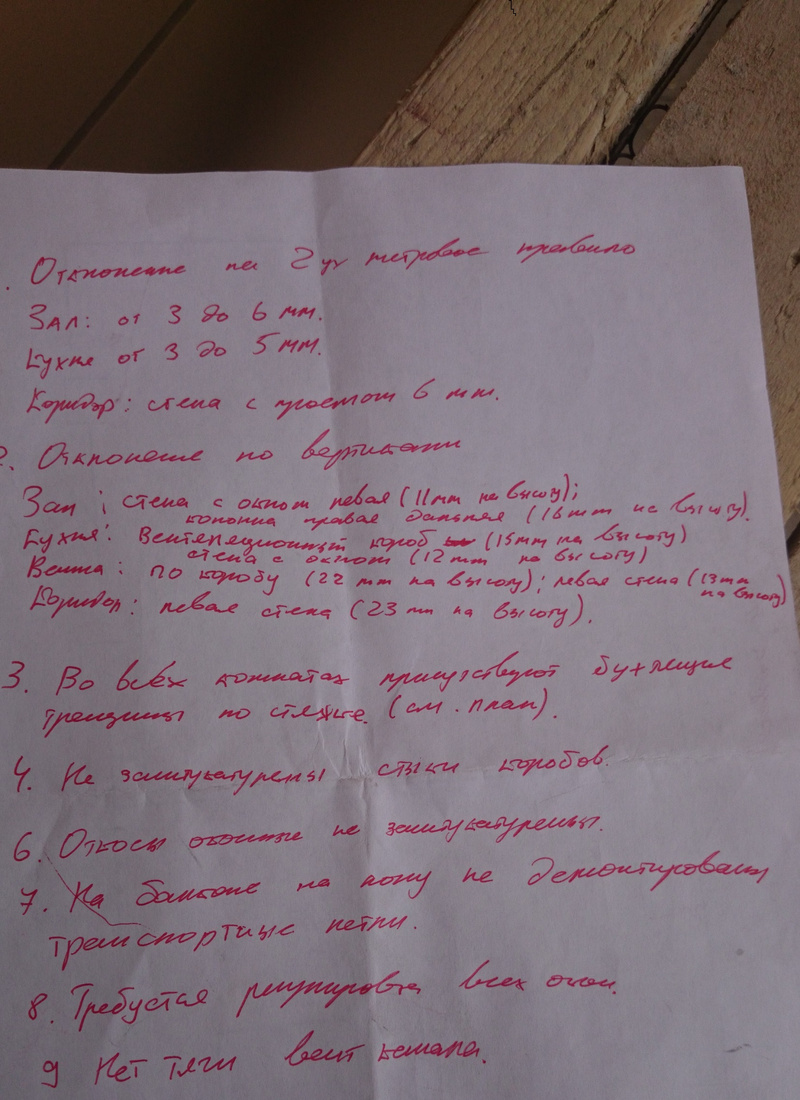 . Отклонение на 2ух метровое правило
Зал: от 3 до 6 мм.
Кухне от 3 до 5 мм.
Коридор: стена с проемом 6 мм.
2. Отклонение по вертикали
Зал: стена с окном левая (11мм на высоту);
колонна правая дальняя (16мм на высоту).
Кухня: Вентеляционный короб (15мм на высоту)
стена с окном (12мм на высоту)
Ванна: по коробу (22 мм на высоту); левая стена (13мм
на высоту)
Коридор: левая стена (23 мм на высоту).
3. Во всех комнатах присутствуют бухлящие
трещины по стяжке. (см. план).
4. Не заштукатурены стыки коробов.
6. Откосы оконные не заштукатурены.
7. На балконе на полу не демонтированы
транспортные петли.
8. Требуется регулировка всех окон.
9 Нет тяги вент канала.